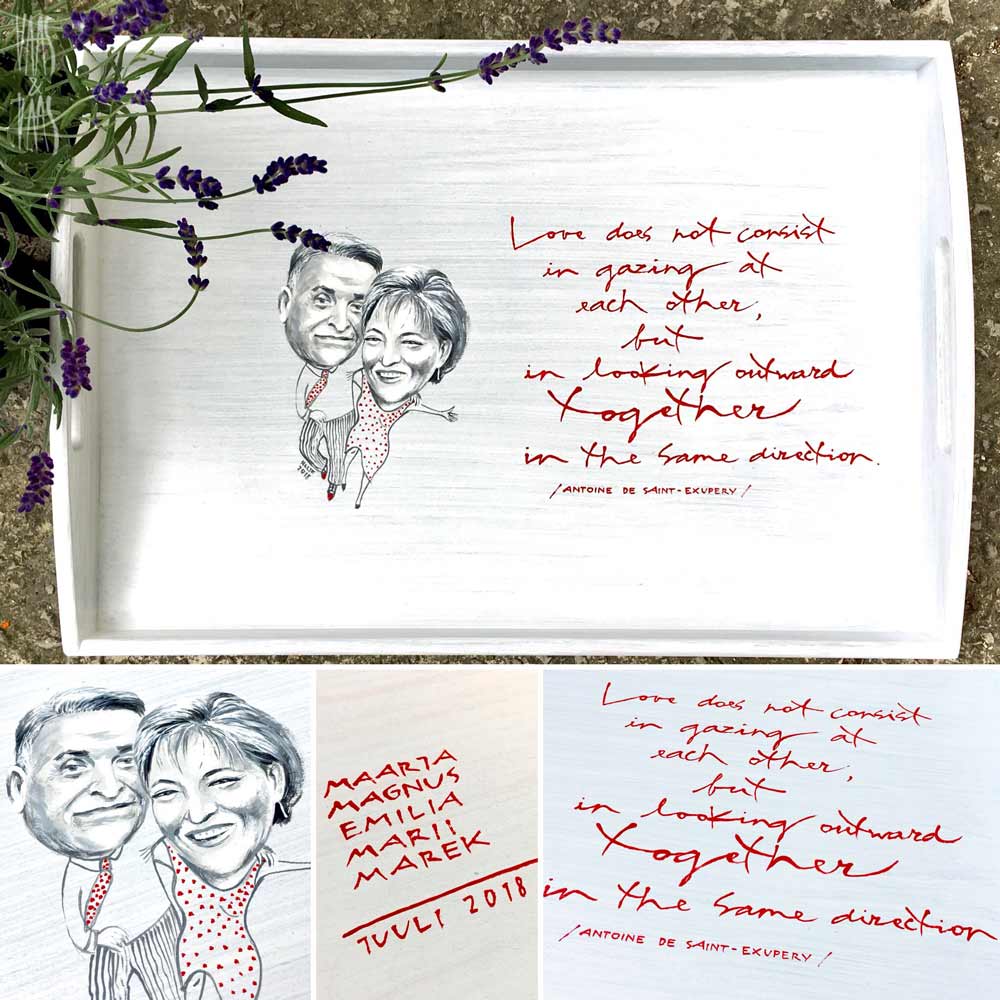 Love does not consist
in gazing at
each other,
but
in looking outward
Together
in the same direction.
/ANTOINE DE SAINT-EXUPERY/
2018
MAARJA
MAGNUS
EMILIA
MARII
MAREK
JUULI 2018
Love does not consist
in gazing at
each other,
but
in looking outward
Together
in the same direction
/ANTOINE DE SAINT-EXUPERY/